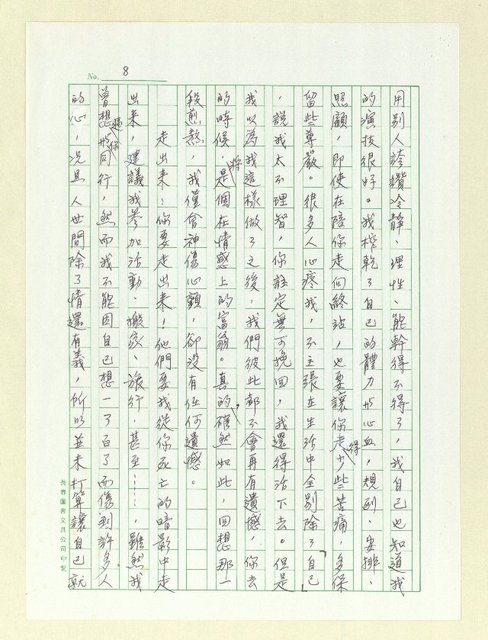 No. 8
用別人誇讚冷靜、理性、能幹得不得了，我自己也知道我
的演技很好。我榨乾了自己的體力和心血，規劃、安排、
照顧，即使在陪你走向終站，也要讓你走得少些苦痛，多保
留些尊嚴。很多人心疼我，不主張在生活中全剔除了自己
，說我太不理智，你註定無可挽回，我還得活下去。但是
我以為我這樣做了之後，我們彼此都不會再有遺憾，你去
的時候，將是個在情感上的富翁。真的，確然如此，回想那一
段煎熬，我僅會神傷心顫，卻沒有任何遺憾。
走出來！你要走出來，他們要我從你死亡的暗影中走
出來，建議我參加活動、搬家、旅行，甚至……，雖然我
曾想過和你同行，然而我不能因自己想一了百了而傷到許多人
的心，況且人世間除了情還有義，所以並未打算讓自己就
長春圖書文具公司印製